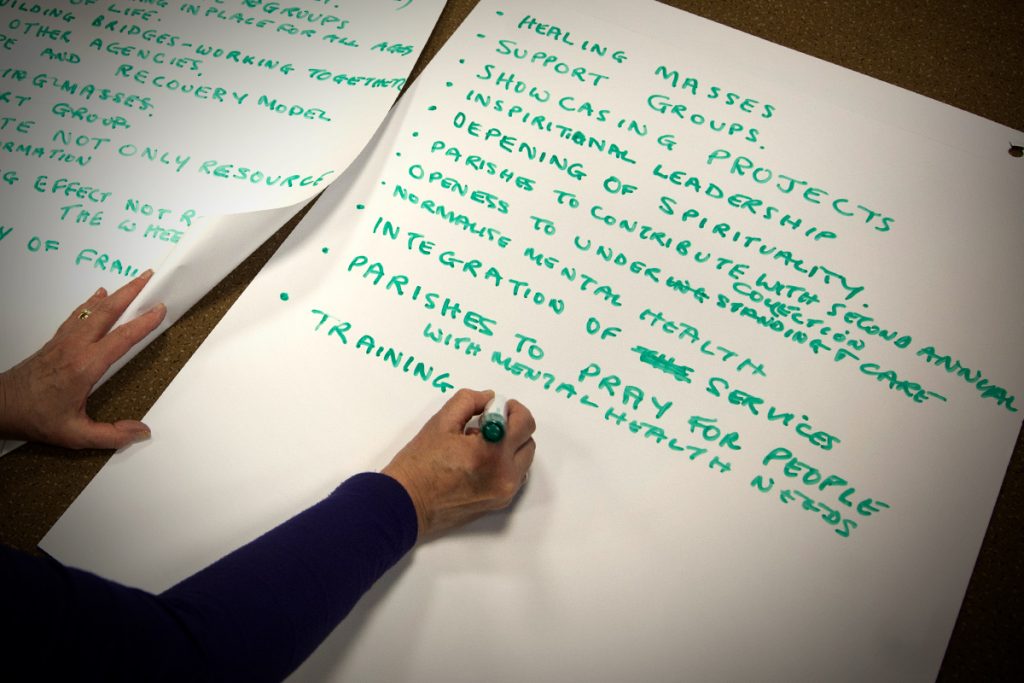 GROUPS
OF LIFE.
IN PLACE FOR ALL AGES
BUILDING BRIDGES-WORKING TOGETHER
OTHER AGENCIES.
AND RECOVERY MODEL.
MASSES.
GROUP.
NOT ONLY RESOURCE
EFFECT NOT
THE
OF
• HEALING MASSES
• SUPPORT GROUPS.
• SHOWCASING PROJECTS
• INSPIRITIONAL LEADERSHIP
• DEPENING OF SPIRITUALITY.
• PARISHES TO CONTRIBUTE WITH SECOND ANNUAL
COLLECTION
• OPENESS TO UNDERSTANDING & CARE
• NORMALISE MENTAL HEALTH
• INTEGRATION OF SERVICES
• PARISHES TO PRAY FOR PEOPLE
WITH MENTAL HEALTH NEEDS
• TRAINING